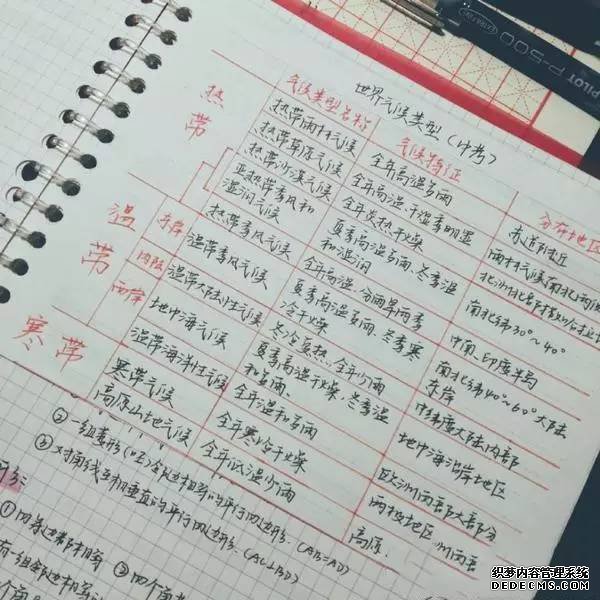 世界气候类型(中考)
气候类型名称 气候特征 分布地区
热带
热带雨林气候 全年高温多雨 赤道附近
热带草原气候 全年高温,干湿季明显 雨林气候南北两侧
热带沙漠气候 全年炎热干燥
亚热带季风和湿润气候 夏季高温多雨、冬季温和湿润 南北纬30°~40°
热带季风气候 全年高温,分雨旱两季 中南、印度半岛
温带
东岸 温带季风气候 夏季高温多雨、冬季寒冷干燥 南北纬40°~60°大陆东岸
内陆 温带大陆性气候 冬冷夏热、全年少雨 中纬度大陆内部
西岸 地中海气候 夏季高温干燥,冬季温和多雨、 地中海沿岸地区
温带海洋性气候 全年温和多雨 欧洲西部大部分
寒带
寒带气候 全年寒冷干燥 两极地区
高原山地气候 全年低温少雨 高原、
对角线互相垂直的平行四边形、(AC⊥BD)
(AB=AD)
①四条边都相等
PILOT P-500
织梦内容管理系统
DEDECMS.COM